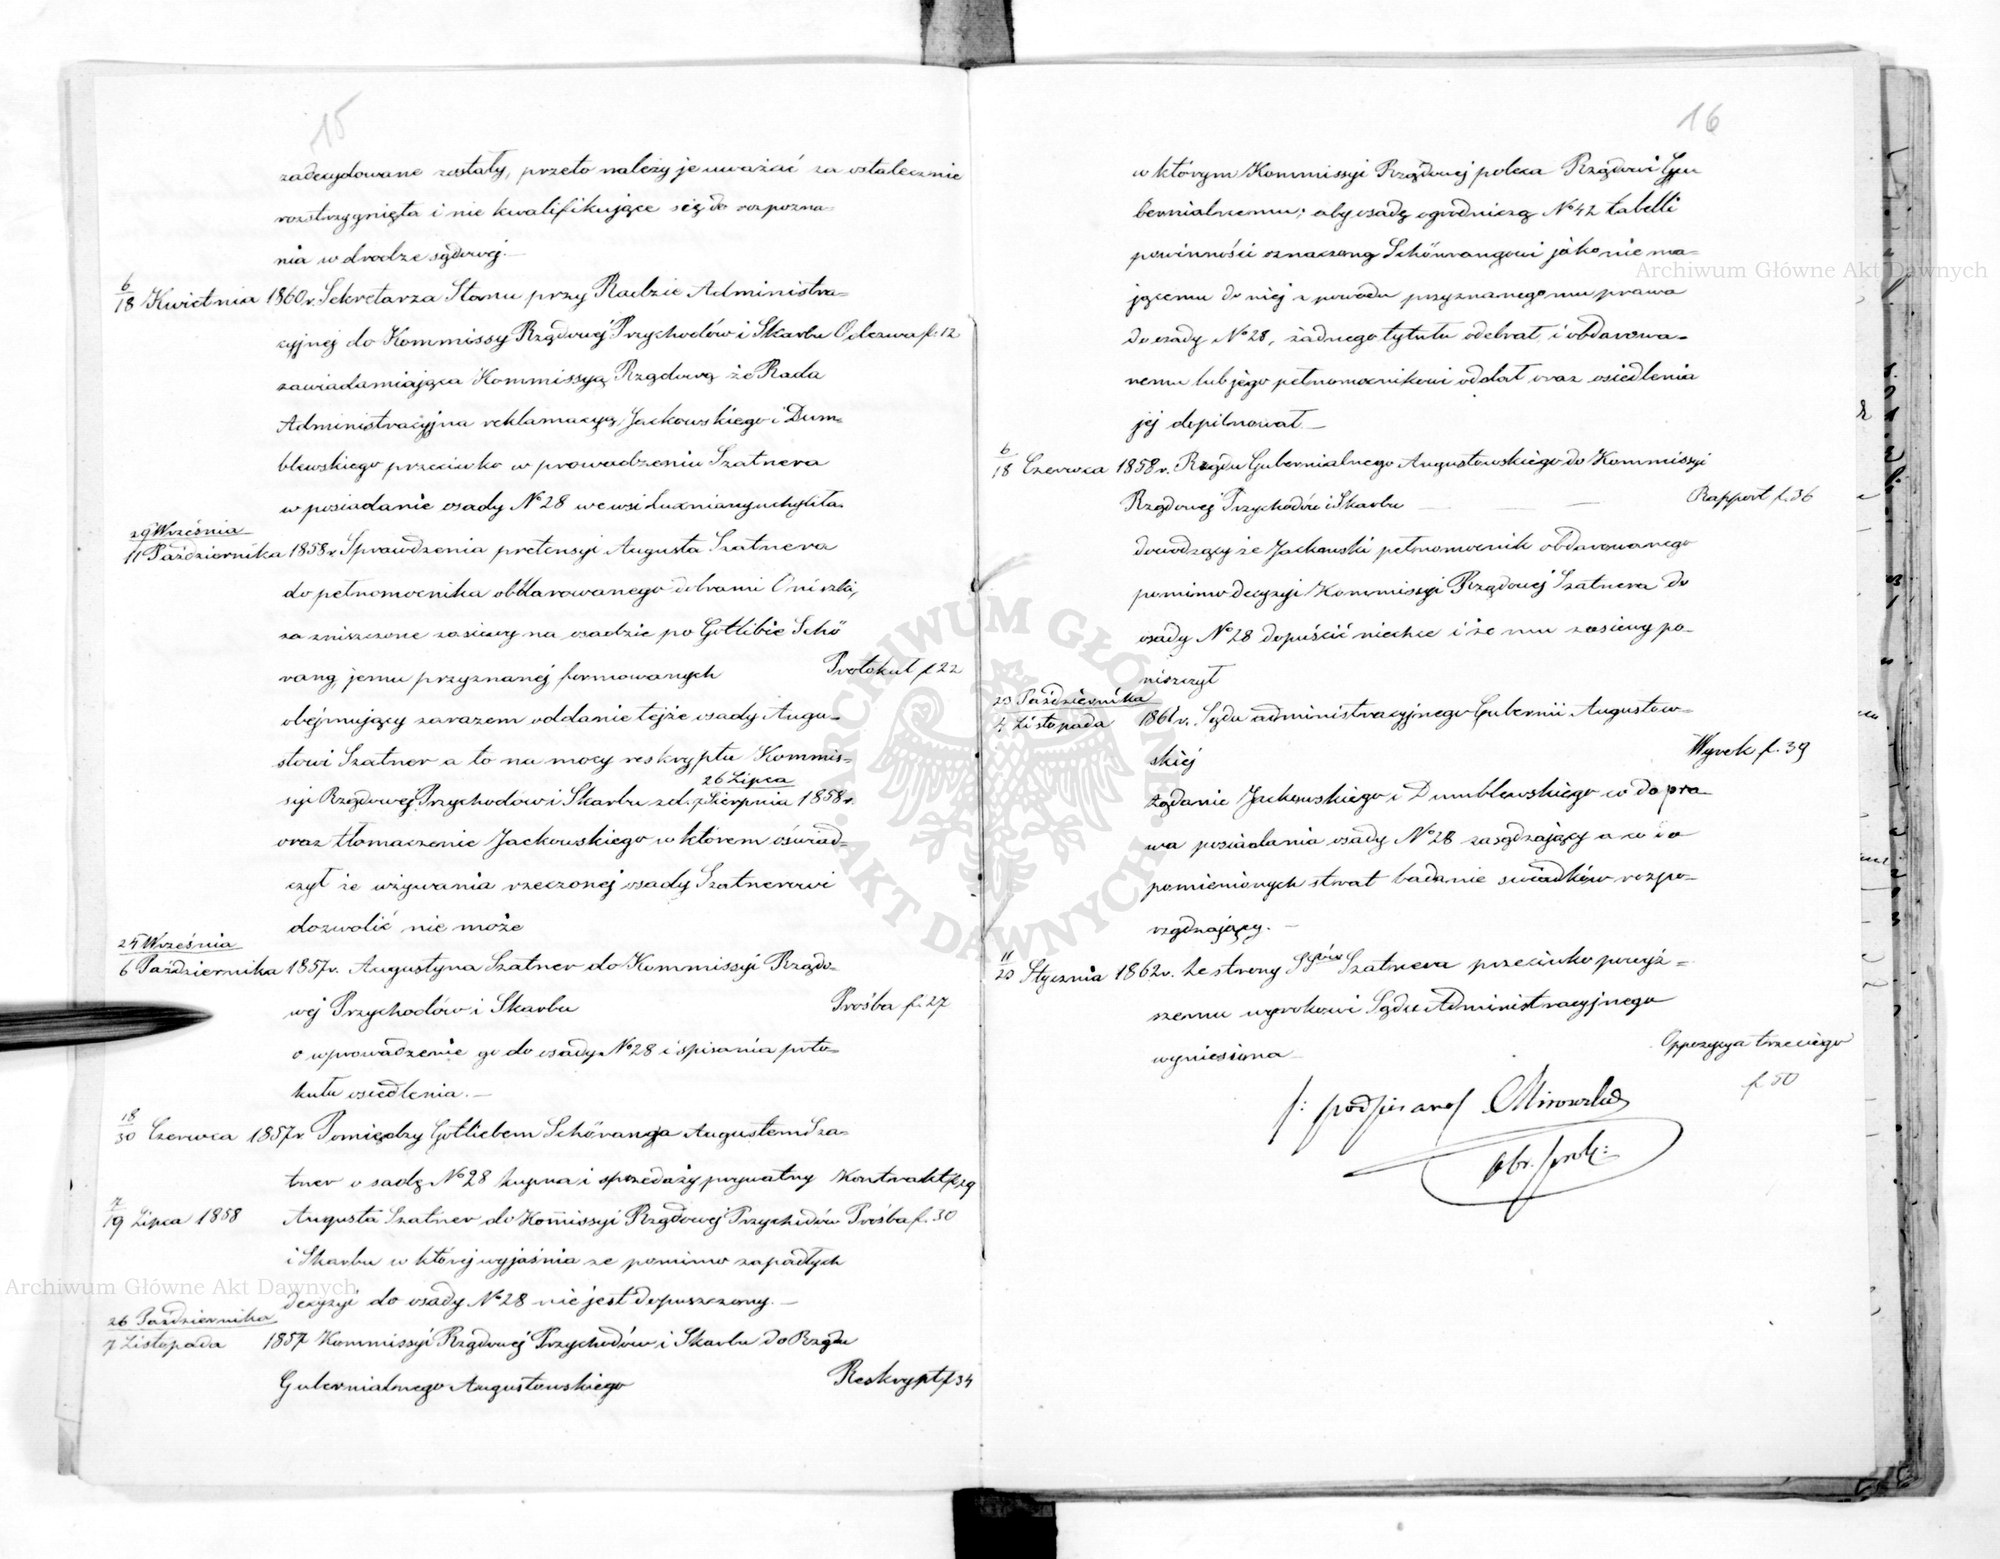 15
zadecydowane zostały, przeto należy je uważać za ostatecznie
rozstrzygnięta i nie kwalifikujące się do rozpozna-
nia w drodze sądowej.—
6/18 Kwietnia 1860 r. Sekretarza Stanu przy Radzie Administra-
cyjnej do Kommissyi Rządowej Przychodów i Skarbu Odezwa f. 12
zawiadamiająca Kommissyą Rządową że Rada
Administracyjna reklamacyą Jackowskiego i Dum-
blewskiego przeciwko wprowadzeniu Szatnera
w posiadanie osady No 28 we wsi Luxniany uchyliła.
29 Września
11 Października 1858 r. Sprawdzenia pretensyi Augusta Szatnera
do pełnomocnika obdarowanego dobrami Oniszki,
za zniszczone zasiewy na osadzie po Gotlibie Schö
rang, jemu przyznanej formowanych Protokuł f 22
obejmujący zarazem oddanie tejże osady Augu-
stowi Szatner a to na mocy reskryptu Kommis-
26 Lipca
syi Rządowej Przychodów i Skarbu zd. 7 Sierpnia 1858 r.
oraz tłomaczenie Jackowskiego w którem oświad-
czył że używania rzeczonej osady Szatnerowi
dozwolić nie może
24 Września
6 Października 1857 r. Augustyna Szatner do Kommissyi Rządo-
wej Przychodów i Skarbu Prośba f. 27
o wprowadzenie go do osady No 28 i spisania proto-
kułu osiedlenia.—
18/30 Czerwca 1857 r. Pomiędzy Gotliebem Schöranga Augustem Sza-
tner o sadę No 28 kupna i sprzedaży prywatny Kontrakt f. 29
7/19 Lipca 1858 Augusta Szatner do Kommissyi Rządowej Przychodów Prośba f. 30
i Skarbu w której wyjaśnia że pomimo zapadłych
decyzyi do osady No 28 nie jest dopuszczony.—
26 Października
7 Listopada 1857 Kommissyi Rządowej Przychodów i Skarbu do Rządu
Gubernialnego Augustowskiego Reskrypt f 34
16
w którym Kommissyi Rządowej poleca Rządowi Gu
bernialnemu; aby osadę ogrodniczą No 42 tabelli
powinności oznaczoną Schörangowi jako nie ma-
jącemu do niej z powodu przyznanego mu prawa
do osady No 28, żadnego tytułu odebrał i obdarowa-
nemu lub jego pełnomocnikowi oddał oraz osiedlenia
jej dopilnował.—
6/18 Czerwca 1858 r. Rządu Gubernialnego Augustowskiego do Kommissyi
Rządowej Przychodów i Skarbu — — Rapport f. 36
dowodzący że Jackowski pełnomocnik obdarowanego
pomimo decyzyi Kommissyi Rządowej Szatnera do
osady No 28 dopuścić niechce i że mu zasiewy po-
niszczył
23 Października
4 Listopada 1861 r. Sądu administracyjnego Gubernii Augustow-
skiej Wyrok f. 39
żądanie Jackowskiego i Dumblewskiego co do pra-
wa posiadania osady No 28 zasądzający a co do
pomienionych strat badanie świadków rozpo-
rządzający.—
11/23 Stycznia 1862 r. Ze strony Szatnera przeciwko powyż=
szemu wyrokowi Sądu Administracyjnego
wyniesiona Oppozycya trzeciego
f. 50
/: podpisano/ Mirowski
Obr. Prok:
Archiwum Główne Akt Dawnych
Archiwum Główne Akt Dawnych
ARCHIWUM GŁÓWNE AKT DAWNYCH